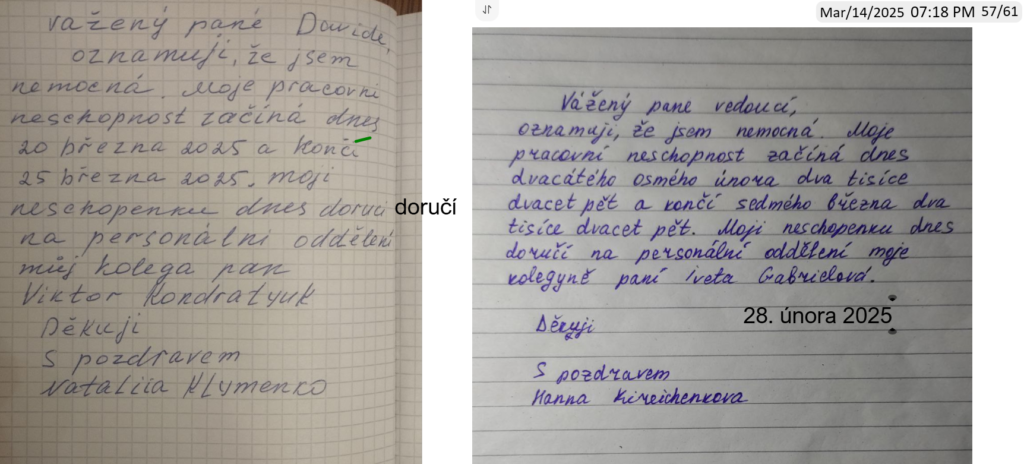 Mar/14/2025 07:18 PM 57/61
vážený pane Davide,
oznamuji, že jsem
nemocná. Moje pracovní
neschopnost začíná dnes
20 března 2025 a končí
25 března 2025. moji
neschopenku dnes doručí doručí
na personální oddělení
můj kolega pan
Viktor Kondratyuk
Děkuji
S pozdravem
Nataliia Klymenko
Vážený pane vedoucí,
oznamuji, že jsem nemocná. Moje
pracovní neschopnost začíná dnes
dvacátého osmého února dva tisíce
dvacet pět a končí sedmého března dva
tisíce dvacet pět. Moji neschopenku dnes
doručí na personální oddělení moje
kolegyně paní Iveta Gabrielová.
28. února 2025
Děkuji
S pozdravem
Hanna Kireichenkova